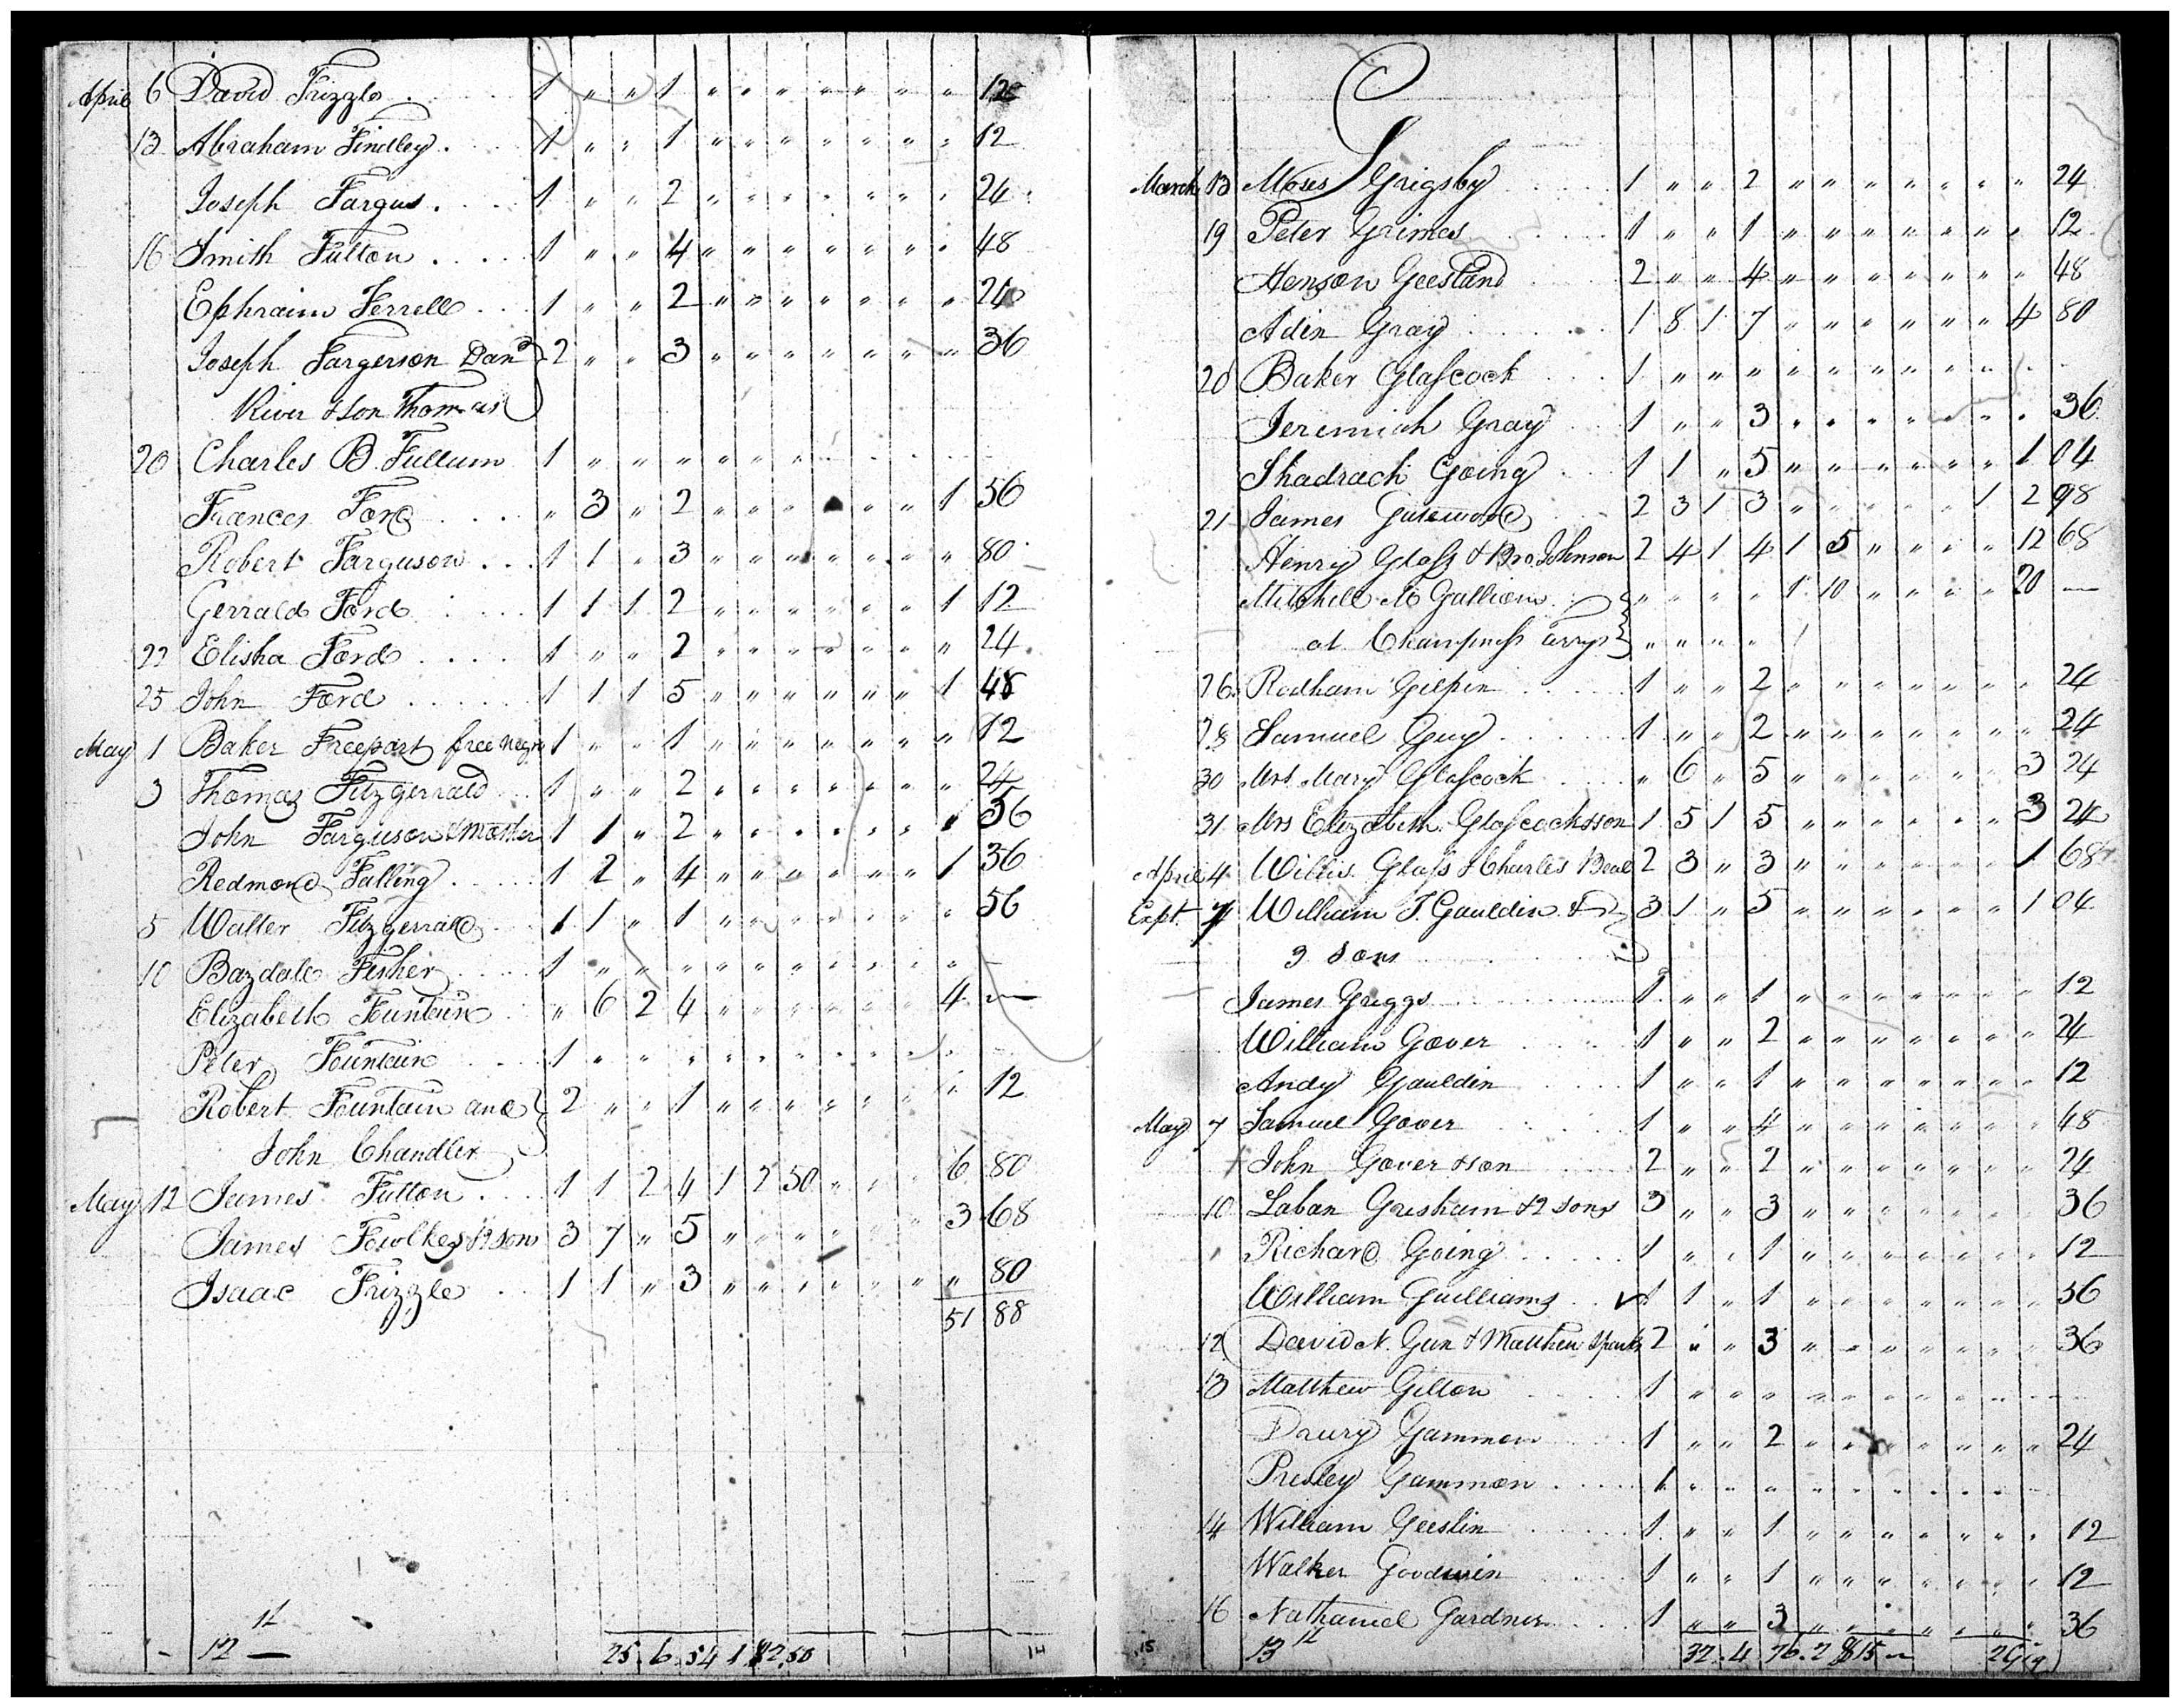 April 6 David Frizzle 1 " " 1 " " " " " " " 12
13 Abraham Findley 1 " " 1 " " " " " " " 12
Joseph Fargus 1 " " 2 " " " " " " " 24
16 Smith Fulton 1 " " 4 " " " " " " " 48
Ephraim Ferrell 1 " " 2 " " " " " " " 24
Joseph Fargerson Dan } 2 " " 3 " " " " " " " 36
River & son Thomas
20 Charles B. Fullum 1 " " " " " "
Frances Ford " 3 " 2 " " " " " " 1 56
Robert Farguson 1 1 " 3 " " " " " " " 80
Gerrald Ford 1 1 1 2 " " " " " " 1 12
22 Elisha Ford 1 " " 2 " " " " " " " 24
25 John Ford 1 1 1 5 " " " " " " 1 48
May 1 Baker Freepart free negro 1 " " 1 " " " " " " " 12
3 Thomas Fitzgerrald 1 " " 2 " " " " " " " 24
John Farguson & Mother 1 1 " 2 " " " " " " " 56
Redmond Falling 1 2 " 4 " " " " " " 1 36
5 Walter Fitzgerrald 1 1 " 1 " " " " " " " 56
10 Bazdale Fisher 1 " " " " " " " " " " —
Elizabeth Fountain " 6 2 4 " " " " " " 4 —
Peter Fountain 1 " " " " " " " " "
Robert Fountain and } 2 " " 1 " " " " " " " 12
John Chandler
May 12 James Fulton 1 1 2 4 1 2 50 " " " 6 80
James Fowlkes & 2 sons 3 7 " 5 " " " " " " 3 68
Isaac Frizzle 1 1 " 3 " " " " " " " 80
51 88
12 —
25 6 54 1 $2.50
14
G
March 13 Moses Grigsby 1 " " 2 " " " " " " " 24
19 Peter Grimes 1 " " 1 " " " " " " " 12
Henson Geesland 2 " " 4 " " " " " " " 48
Adin Gray 1 8 1 7 " " " " " " 4 80
20 Baker Glascock 1 " " " " " " " " "
Jeremiah Gray 1 " " 3 " " " " " " " 36
Shadrach Going 1 1 " 5 " " " " " " 1 04
21 James Gatewood 2 3 1 3 " " " " " 1 2 98
Henry Glass & Bro. Johnson 2 4 1 4 1 5 " " " " 12 68
Mitchell McGallion } " " " " 1 10 " " " " 20 —
at Champness Terrys " " " "
26 Rodham Gilpin 1 " " 2 " " " " " " " 24
28 Samuel Guy 1 " " 2 " " " " " " " 24
30 Mrs Mary Glascock " 6 " 5 " " " " " " 3 24
31 Mrs Elizabeth Glascock & son 1 5 1 5 " " " " " " 3 24
April 4 Willis Glass & Charles Beal 2 3 " 3 " " " " " " 1 68
Expt. 7 William T. Gauldin & } 3 1 " 5 " " " " " " 1 04
2 sons
James Griggs 1 " " 1 " " " " " " " 12
William Gover 1 " " 2 " " " " " " " 24
Andy Gauldin 1 " " 1 " " " " " " " 12
May 7 Samuel Gover 1 " " 4 " " " " " " " 48
John Gover & son 2 " " 2 " " " " " " " 24
10 Laban Gresham & 2 sons 3 " " 3 " " " " " " 36
Richard Going 1 " " 1 " " " " " " " 12
William Guilliams 1 1 " 1 " " " " " " " 56
12 David N. Gun & Matthew Sparks 2 " " 3 " " " " " " " 36
13 Matthew Gilton 1 " " " " " " " " "
Drury Gammon 1 " " 2 " " " " " " " 24
Presley Gammon 1 " " " " " " " " "
14 William Geeslin 1 " " 1 " " " " " " " 12
Walker Goodwin 1 " " 1 " " " " " " " 12
16 Nathaniel Gardner 1 " " 3 " " " " " " " 36
15
13
32 4 76 2 $15